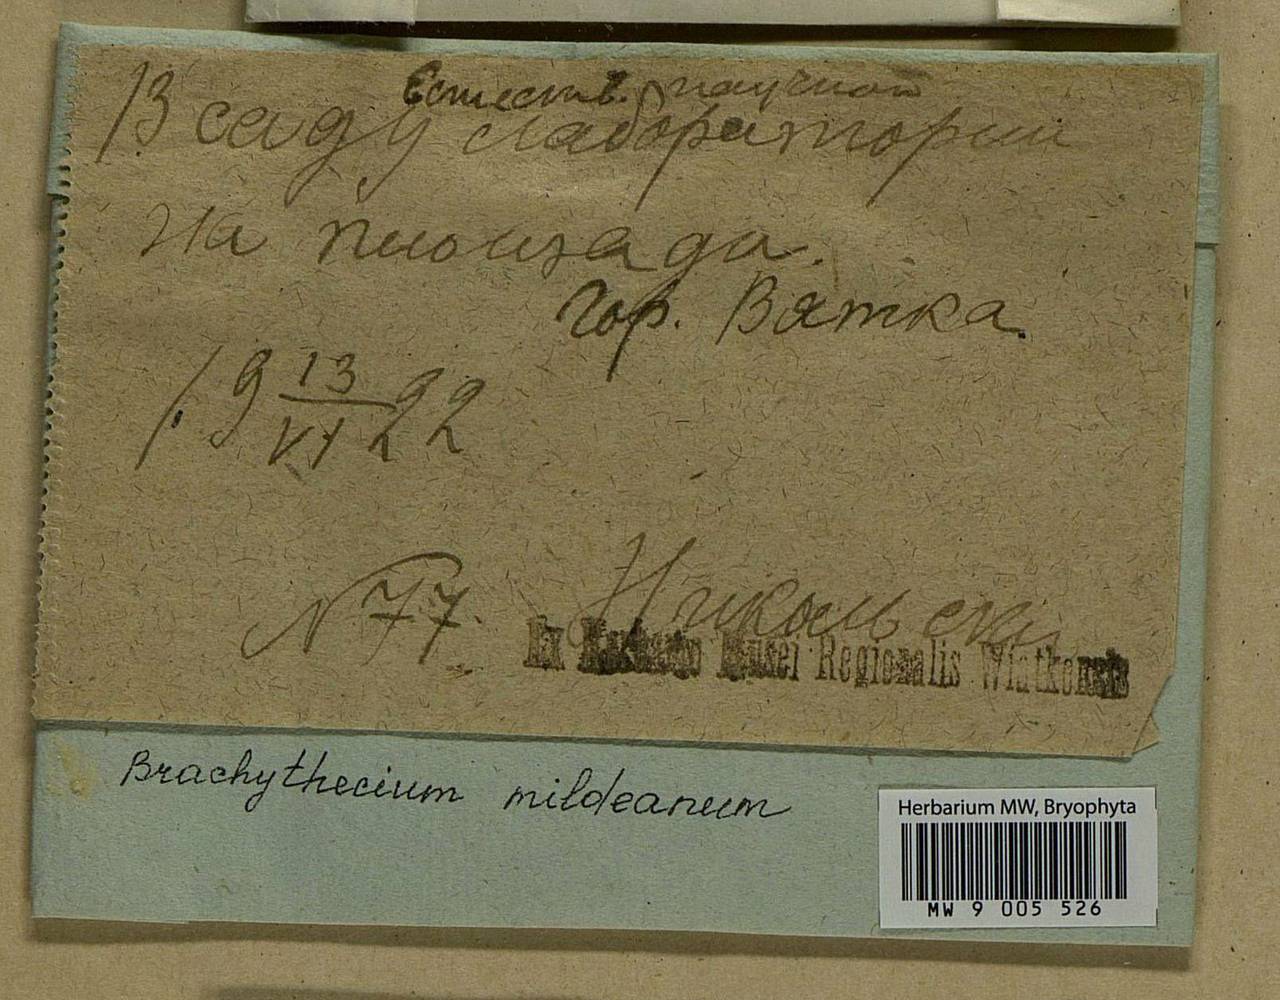 Естеств. научной
В саду лаборатории
на площади.
Гор. Вятка.
19 13/VI 22
N 77. Никольск
Ex Herbario Musei Regionalis Wiatkensis
Brachythecium mildeanum
Herbarium MW, Bryophyta
MW 9 005 526